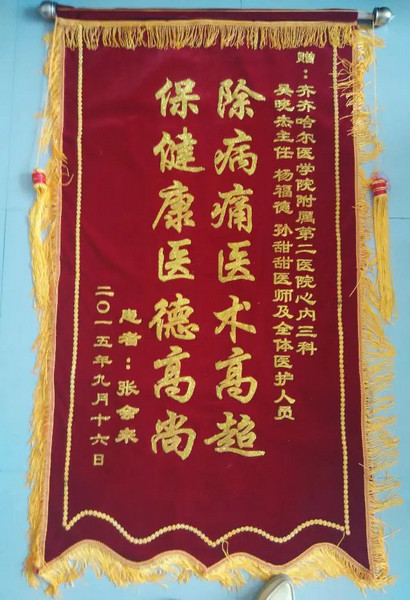 赠：齐齐哈尔医学院附属第二医院心内三科
吴晚杰主任 杨福德 孙甜甜医师及全体医护人员
除病痛医术高超
保健康医德高尚
患者：张会来
二〇一五年九月十六日